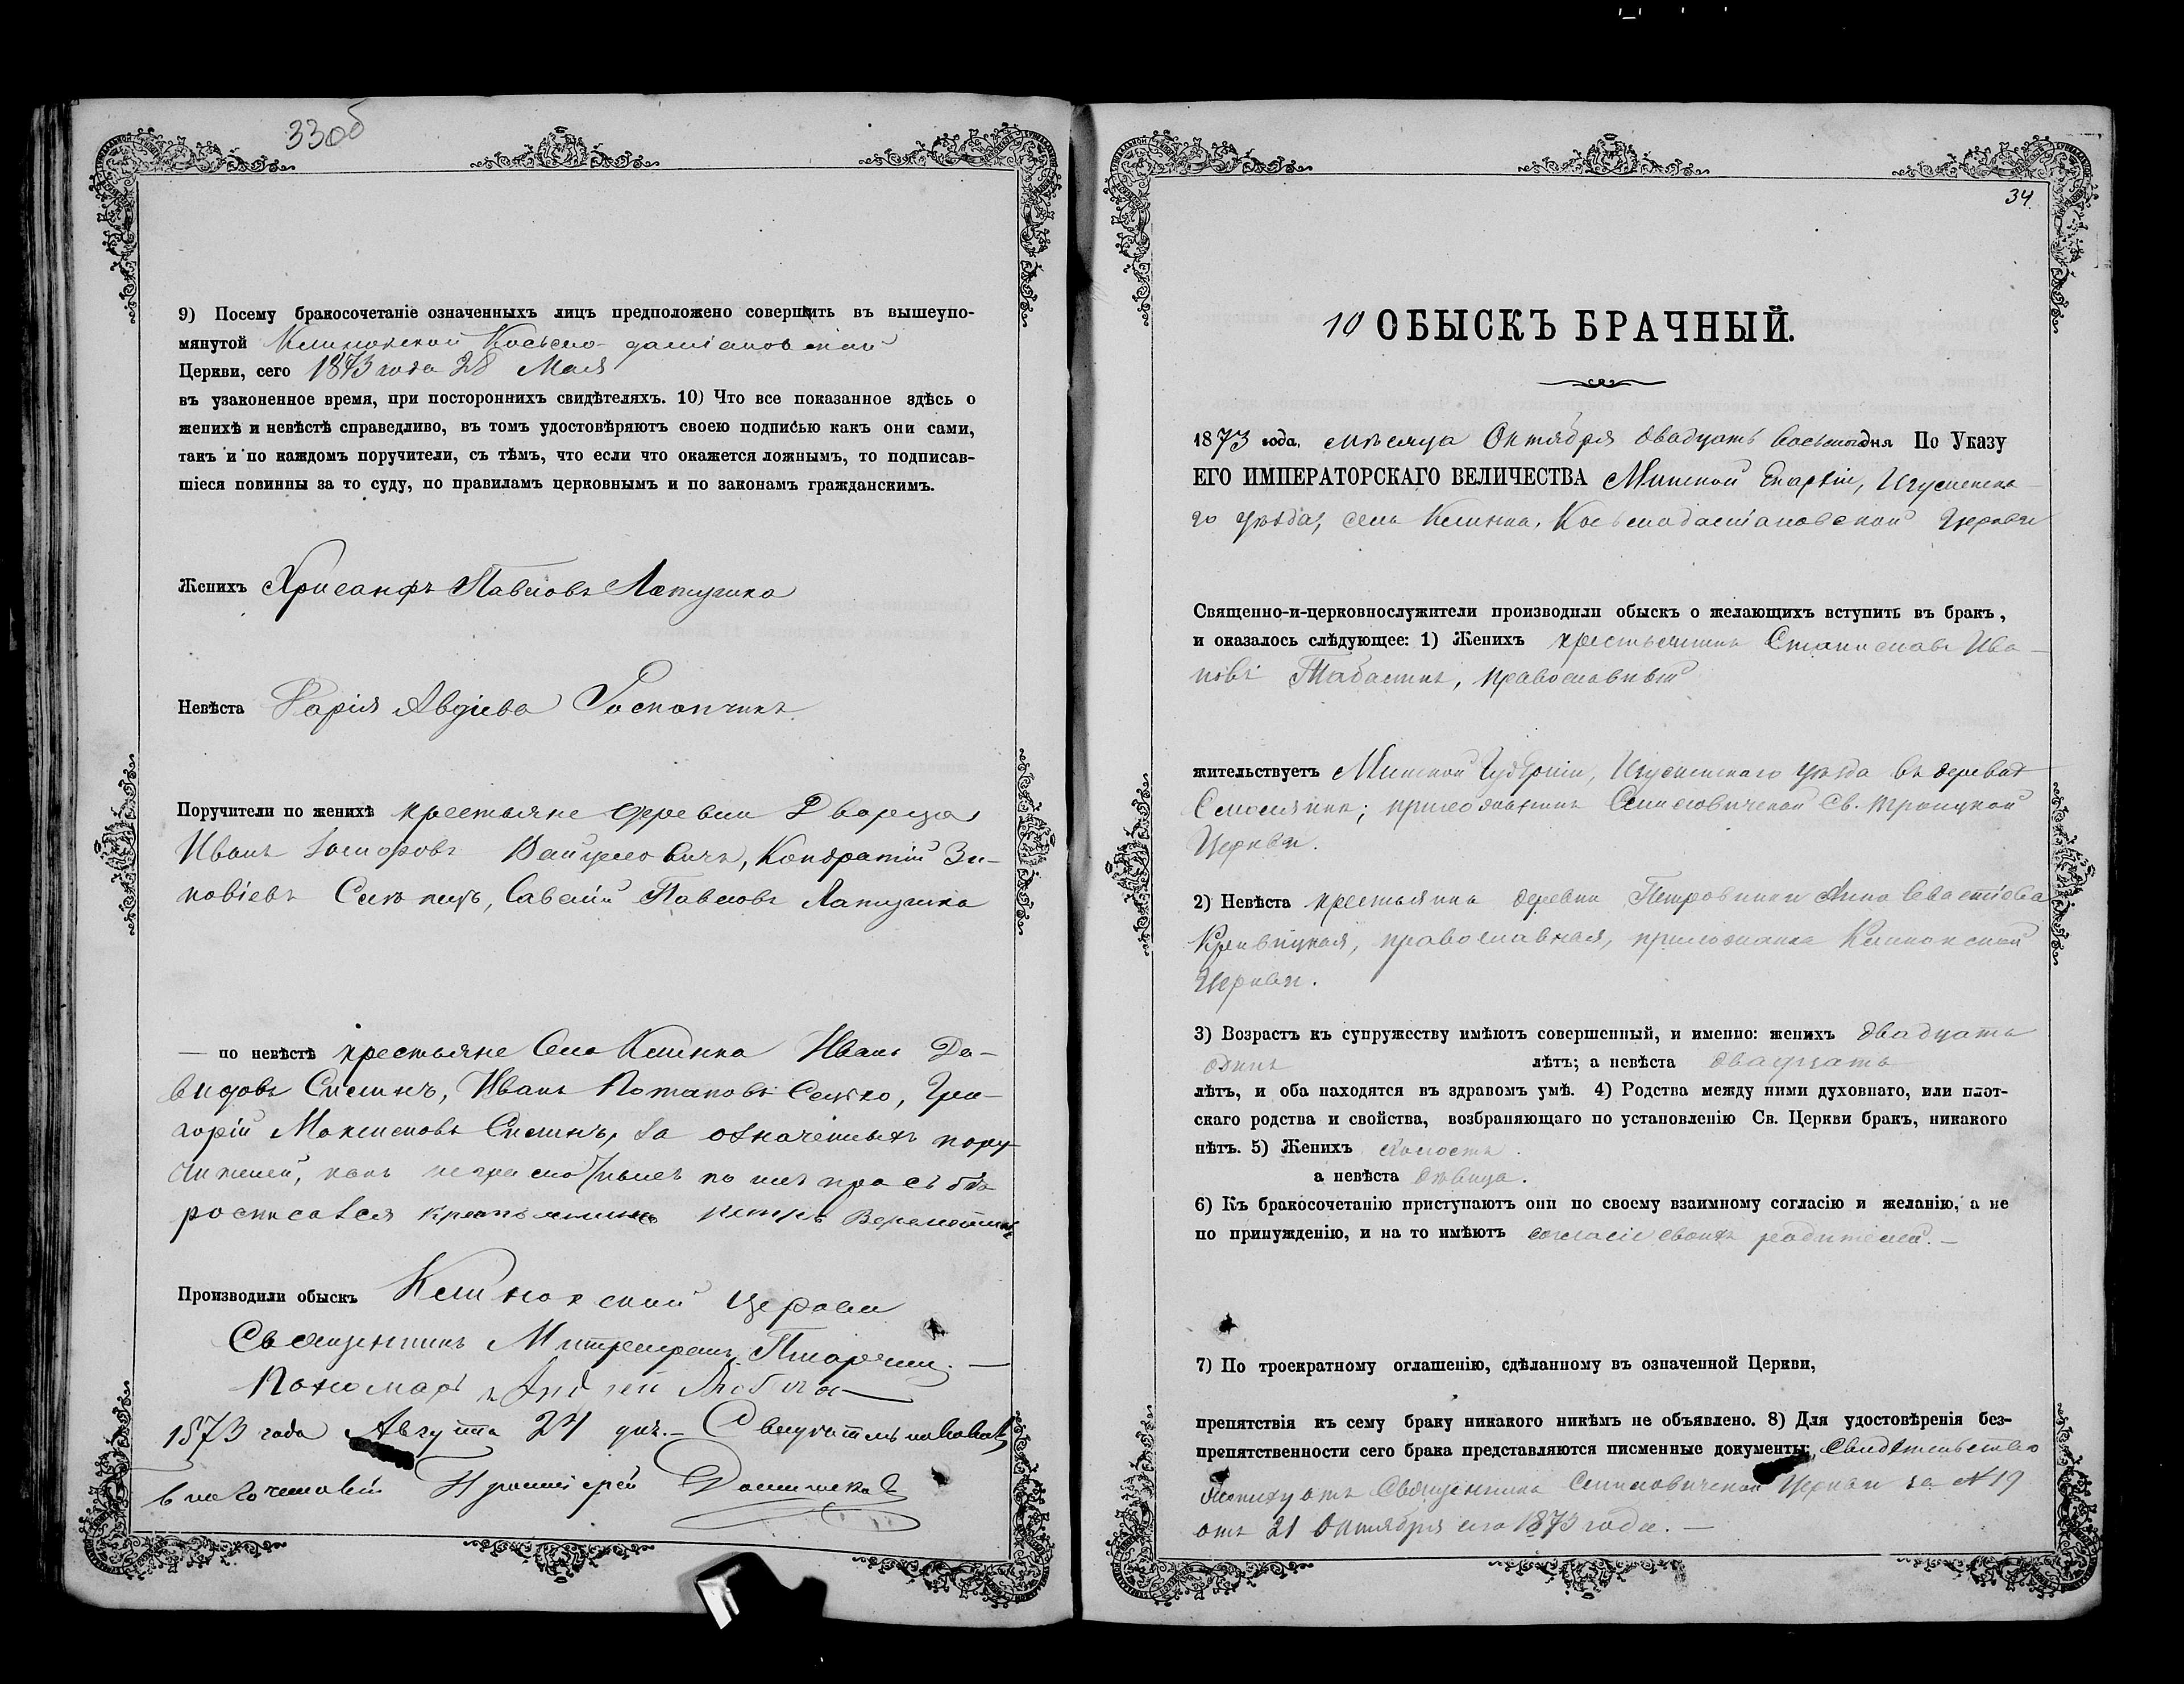 330б
9) Посему бракосочетаніе означенныхъ лицъ предположено совершить въ вышеупо-
мянутой Клинокской Косьмо-даміановской
Церкви, сего 1873 года 28 Мая
въ узаконенное время, при постороннихъ свидѣтеляхъ. 10) Что все показанное здѣсь о
женихѣ и невѣстѣ справедливо, въ томъ удостовѣряютъ своею подписью какъ они сами,
такъ и по каждомъ поручители, съ тѣмъ, что если что окажется ложнымъ, то подписав-
шіеся повинны за то суду, по правиламъ церковнымъ и по законамъ гражданскимъ.
Женихъ Хрисанфъ Павловъ Лапушка
Невѣста Марія Авдіева
Поручители по женихѣ крестьяне деревни Дворца
Иванъ Кондратій Зи-
новіевъ Савелій Павловъ Лапушка
— по невѣстѣ крестьяне села Клинка Иванъ Да-
видовъ Иванъ Потаповъ Гри-
горій Максимовъ за означенныхъ пору-
чителей, какъ неграмотныхъ по ихъ просьбѣ
росписался крестьянинъ Петръ
Производили обыскъ Клинокской церкви
Священникъ
Пономарь Андрей
1873 года Августа 24 дня.
Благочинный
34.
10 ОБЫСКЪ БРАЧНЫЙ.
1873 года, мѣсяца Октября двадцать восьмого дня По Указу
ЕГО ИМПЕРАТОРСКАГО ВЕЛИЧЕСТВА Минской Епархіи, Игуменска-
го уѣзда, села Клинка, Косьмодаміановской Церкви
Священно-и-церковнослужители производили обыскъ о желающихъ вступить въ бракъ,
и оказалось слѣдующее: 1) Женихъ крестьянинъ Станиславъ Ива-
новъ православный
жительствуетъ Минской Губерніи, Игуменскаго уѣзда въ деревнѣ
прихожанинъ Св. Троицкой
Церкви.
2) Невѣста крестьянка деревни Петровинки Анна
Кривицкая, православная, прихожанка Клинокской
Церкви.
3) Возрастъ къ супружеству имѣютъ совершенный, и именно: женихъ двадцать
одинъ лѣтъ; а невѣста двадцать
лѣтъ, и оба находятся въ здравомъ умѣ. 4) Родства между ними духовнаго, или плот-
скаго родства и свойства, возбраняющаго по установленію Св. Церкви бракъ, никакого
нѣтъ. 5) Женихъ холостъ.
а невѣста дѣвица.
6) Къ бракосочетанію приступаютъ они по своему взаимному согласію и желанію, а не
по принужденію, и на то имѣютъ согласіе своихъ родителей. —
7) По троекратному оглашенію, сдѣланному въ означенной Церкви,
препятствія къ сему браку никакого никѣмъ не объявлено. 8) Для удостовѣренія без-
препятственности сего брака представляются писменные документы: свидѣтельство
жениху отъ Священника Церкви за N 19
отъ 21 Октября сего 1873 года. —